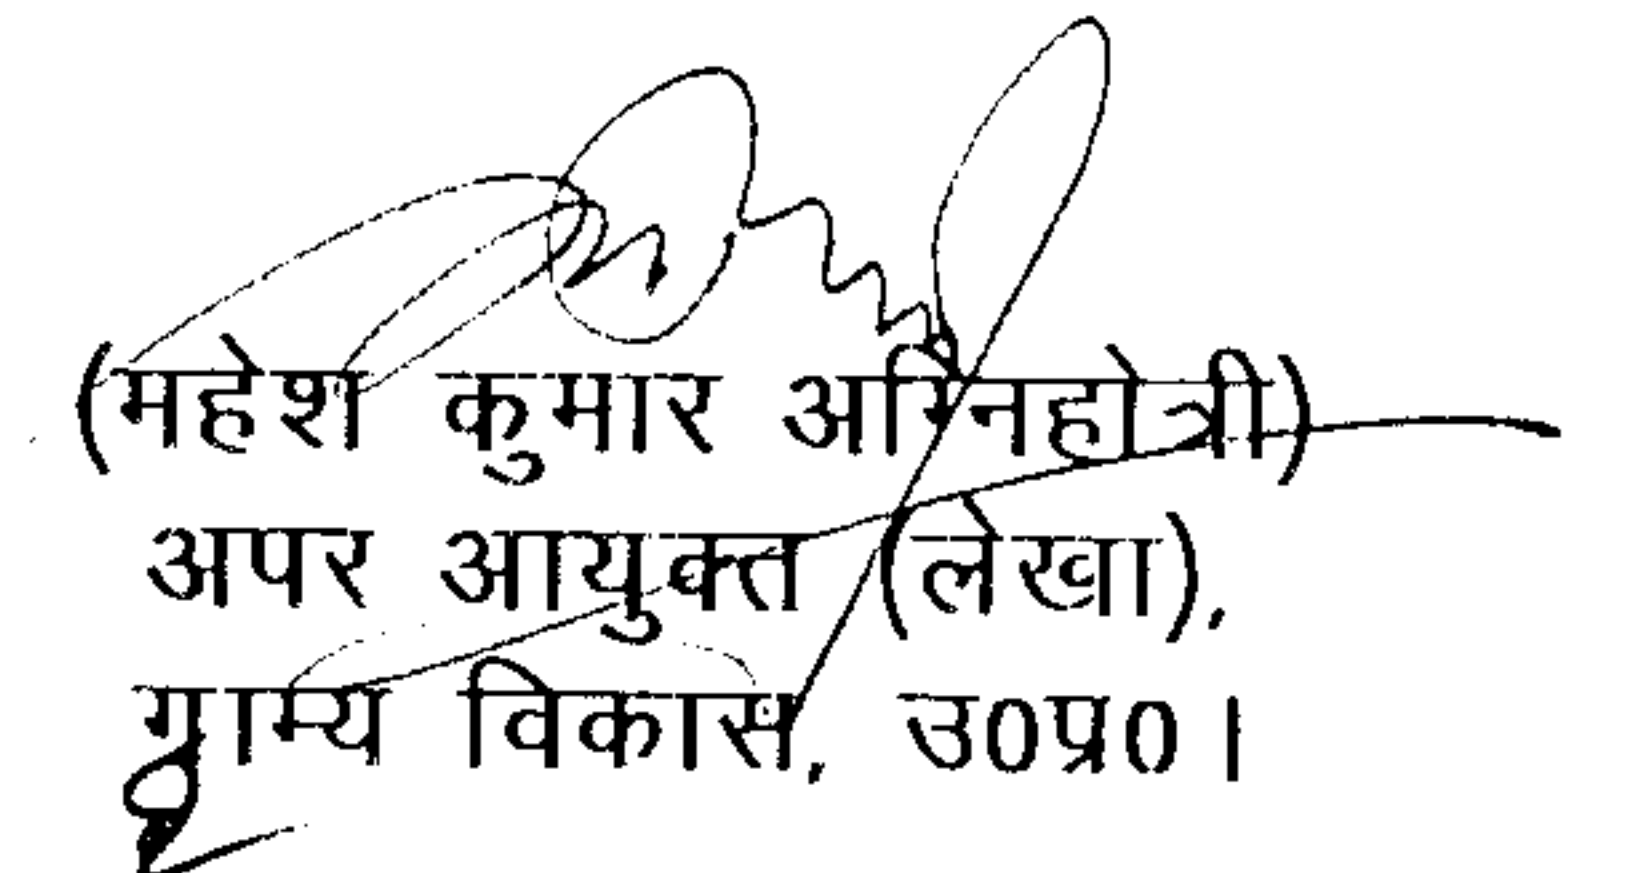 (महेश कुमार अग्निहोत्री)
अपर आयुक्त (लेखा),
ग्राम्य विकास, उ0प्र0।